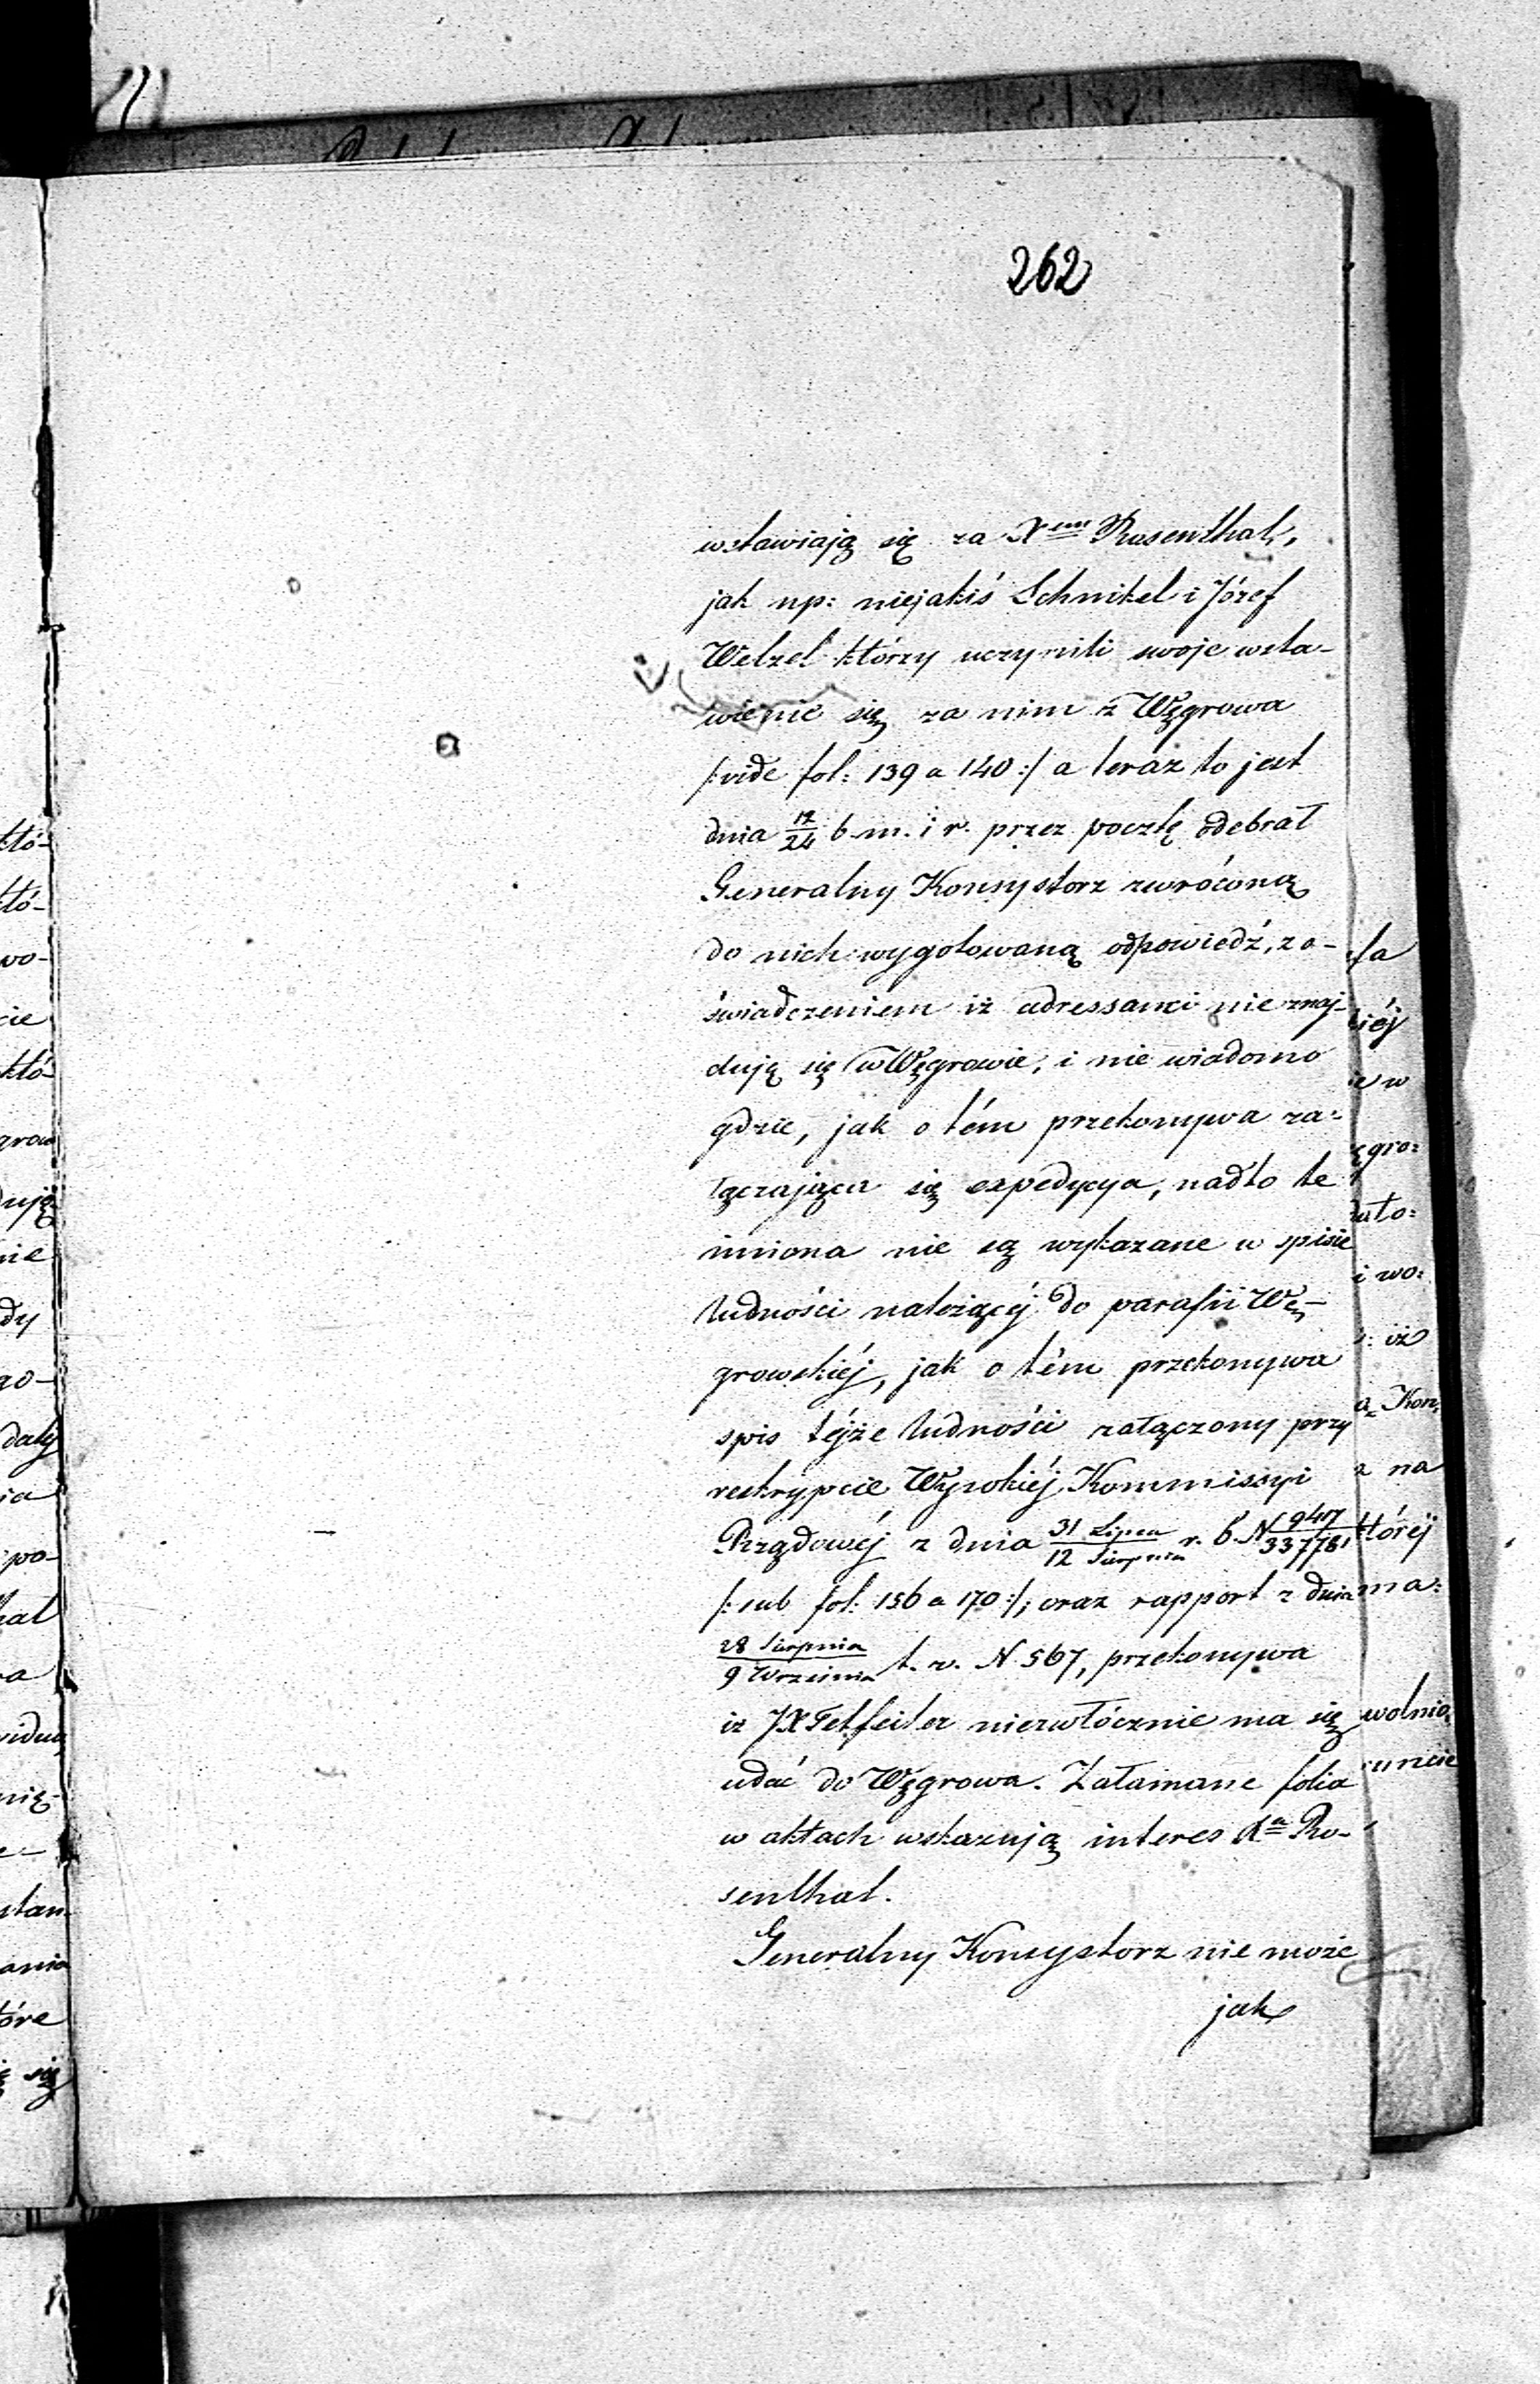 262
wstawiają się za X<sup>em</sup> Rosenthal,
jak np: niejakiś Schnikel i Józef
Welzel którzy uczynili swoje wsta-
wienie się za nim z Węgrowa
/:vide fol: 139 a 140:/ a teraz to jest
dnia 12/24 b. m. i r. przez pocztę odebrał
Generalny Konsystorz zwróconą
do nich wygotowaną odpowiedź, z o-
świadczeniem iż adressanci nie znaj-
dują się w Węgrowie, i nie wiadomo
gdzie, jak o tém przekonywa za=
łączająca się expedycya, nadto te
imiona nie są wykazane w spisie
ludności należącéj do parafii Wę-
growskiéj, jak o tém przekonywa
spis téjże ludności załączony przy
reskrypcie Wysokiéj Kommissyi
Rządowéj z dnia 31 Lipca/12 Sierpnia r. b. N 9417/33778,
/:sub fol: 156 a 170:/; oraz rapport z dnia
28 Sierpnia/9 Września t. r. N 567, przekonywa
iż JX Tetfejler niezwłócznie ma się
udać do Węgrowa. Załamane folia
w aktach wskazują interes X<sup>a</sup> Ro-
senthal.
Generalny Konsystorz nie może
jak